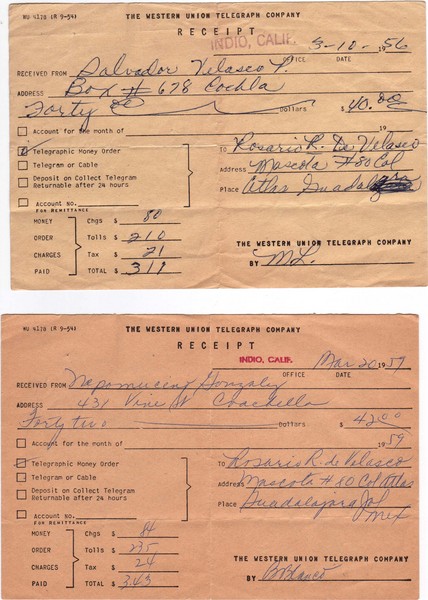 WU 4178 (R 9-54) THE WESTERN UNION TELEGRAPH COMPANY
RECEIPT
INDIO, CALIF. 3-10-1956
OFFICE DATE
RECEIVED FROM Salvador Velasco P.
ADDRESS Box # 678 Cochla
Forty Dollars $ 40.00
Account for the month of 19
Telegraphic Money Order TO Rosario R. De Velasco
Telegram or Cable Address Mascota #80 Col
Deposit on Collect Telegram Place Atlas Guadalajara
Returnable after 24 hours
Account No.
FOR REMITTANCE
MONEY Chgs $ 80
ORDER Tolls $ 210
CHARGES Tax $ 21 THE WESTERN UNION TELEGRAPH COMPANY
PAID TOTAL $ 311 BY M.L.
WU 4178 (R 9-54) THE WESTERN UNION TELEGRAPH COMPANY
RECEIPT
INDIO, CALIF. Mar 20 1959
OFFICE DATE
RECEIVED FROM Nepomuceno Gonzalez
ADDRESS 431 Vine St Coachella
Forty two Dollars $ 42.00
Account for the month of 1959
Telegraphic Money Order TO Rosario R. de Velasco
Telegram or Cable Address Mascota # 80 Col Atlas
Deposit on Collect Telegram Place Guadalajara Jal
Returnable after 24 hours Mex
Account No.
FOR REMITTANCE
MONEY Chgs $ 84
ORDER Tolls $ 235
CHARGES Tax $ 24 THE WESTERN UNION TELEGRAPH COMPANY
PAID TOTAL $ 3.43 BY B Blanco